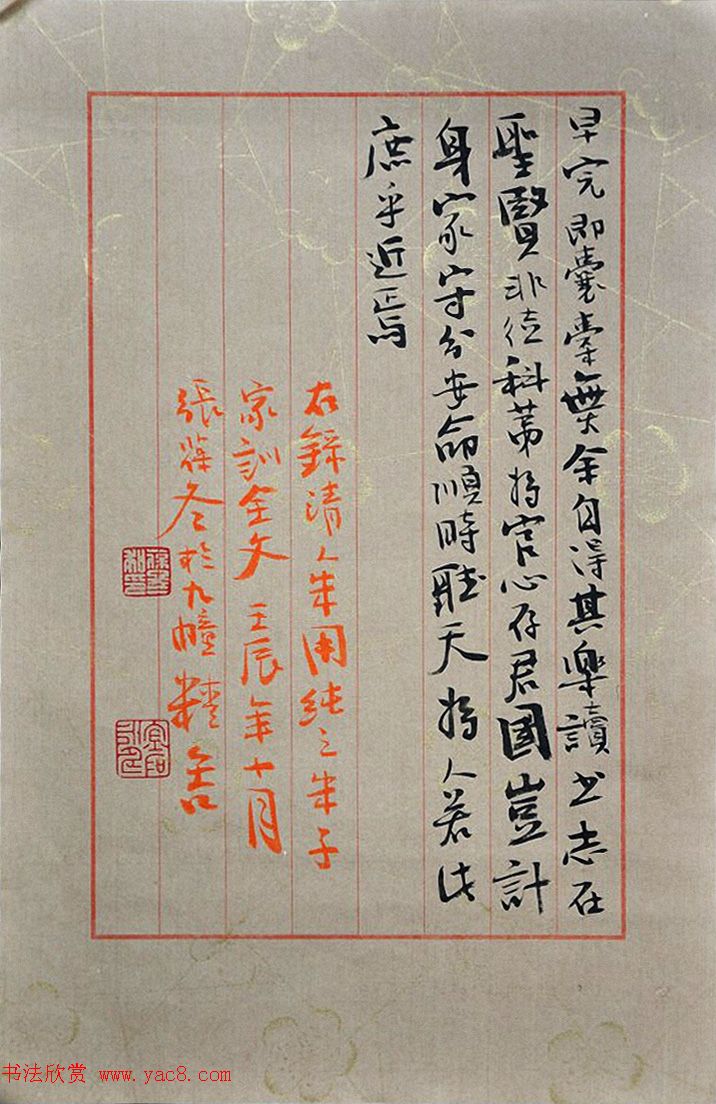 早完即囊橐無余自得其樂讀书志在
聖賢非徒科第为官心存君國豈計
身家守分安命順時聽天为人若此
庶乎近焉
右錄清人朱用純之朱子
家訓全文壬辰年十月
張葆冬於九幢精舍
书法欣赏 www.yac8.com